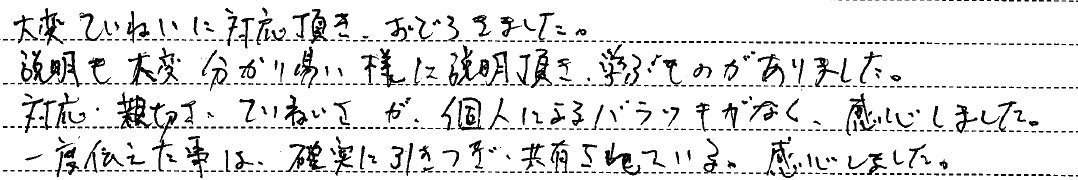 大変ていねいに対応頂き、おどろきました。
説明も大変分かり易い様に説明頂き、学ぶものがありました。
対応・親切さ、ていねいさが、個人によるバラツキがなく、感心しました。
一度伝えた事は、確実に引きつぎ・共有されている。感心しました。